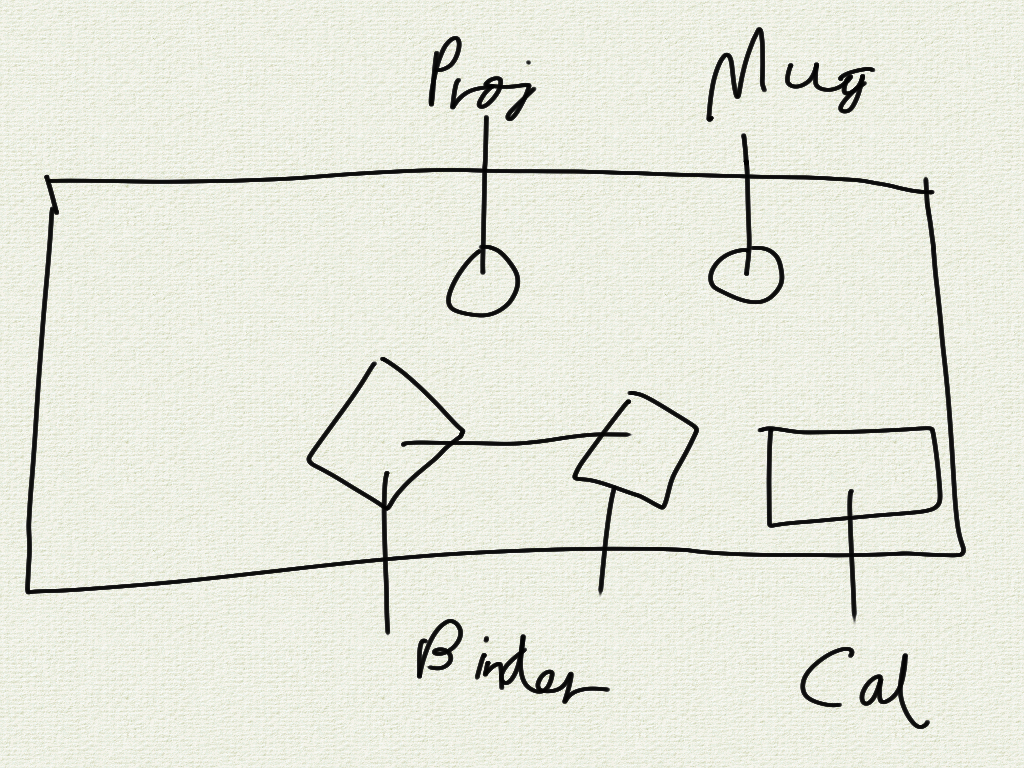 Proj Mug
Binder Cal